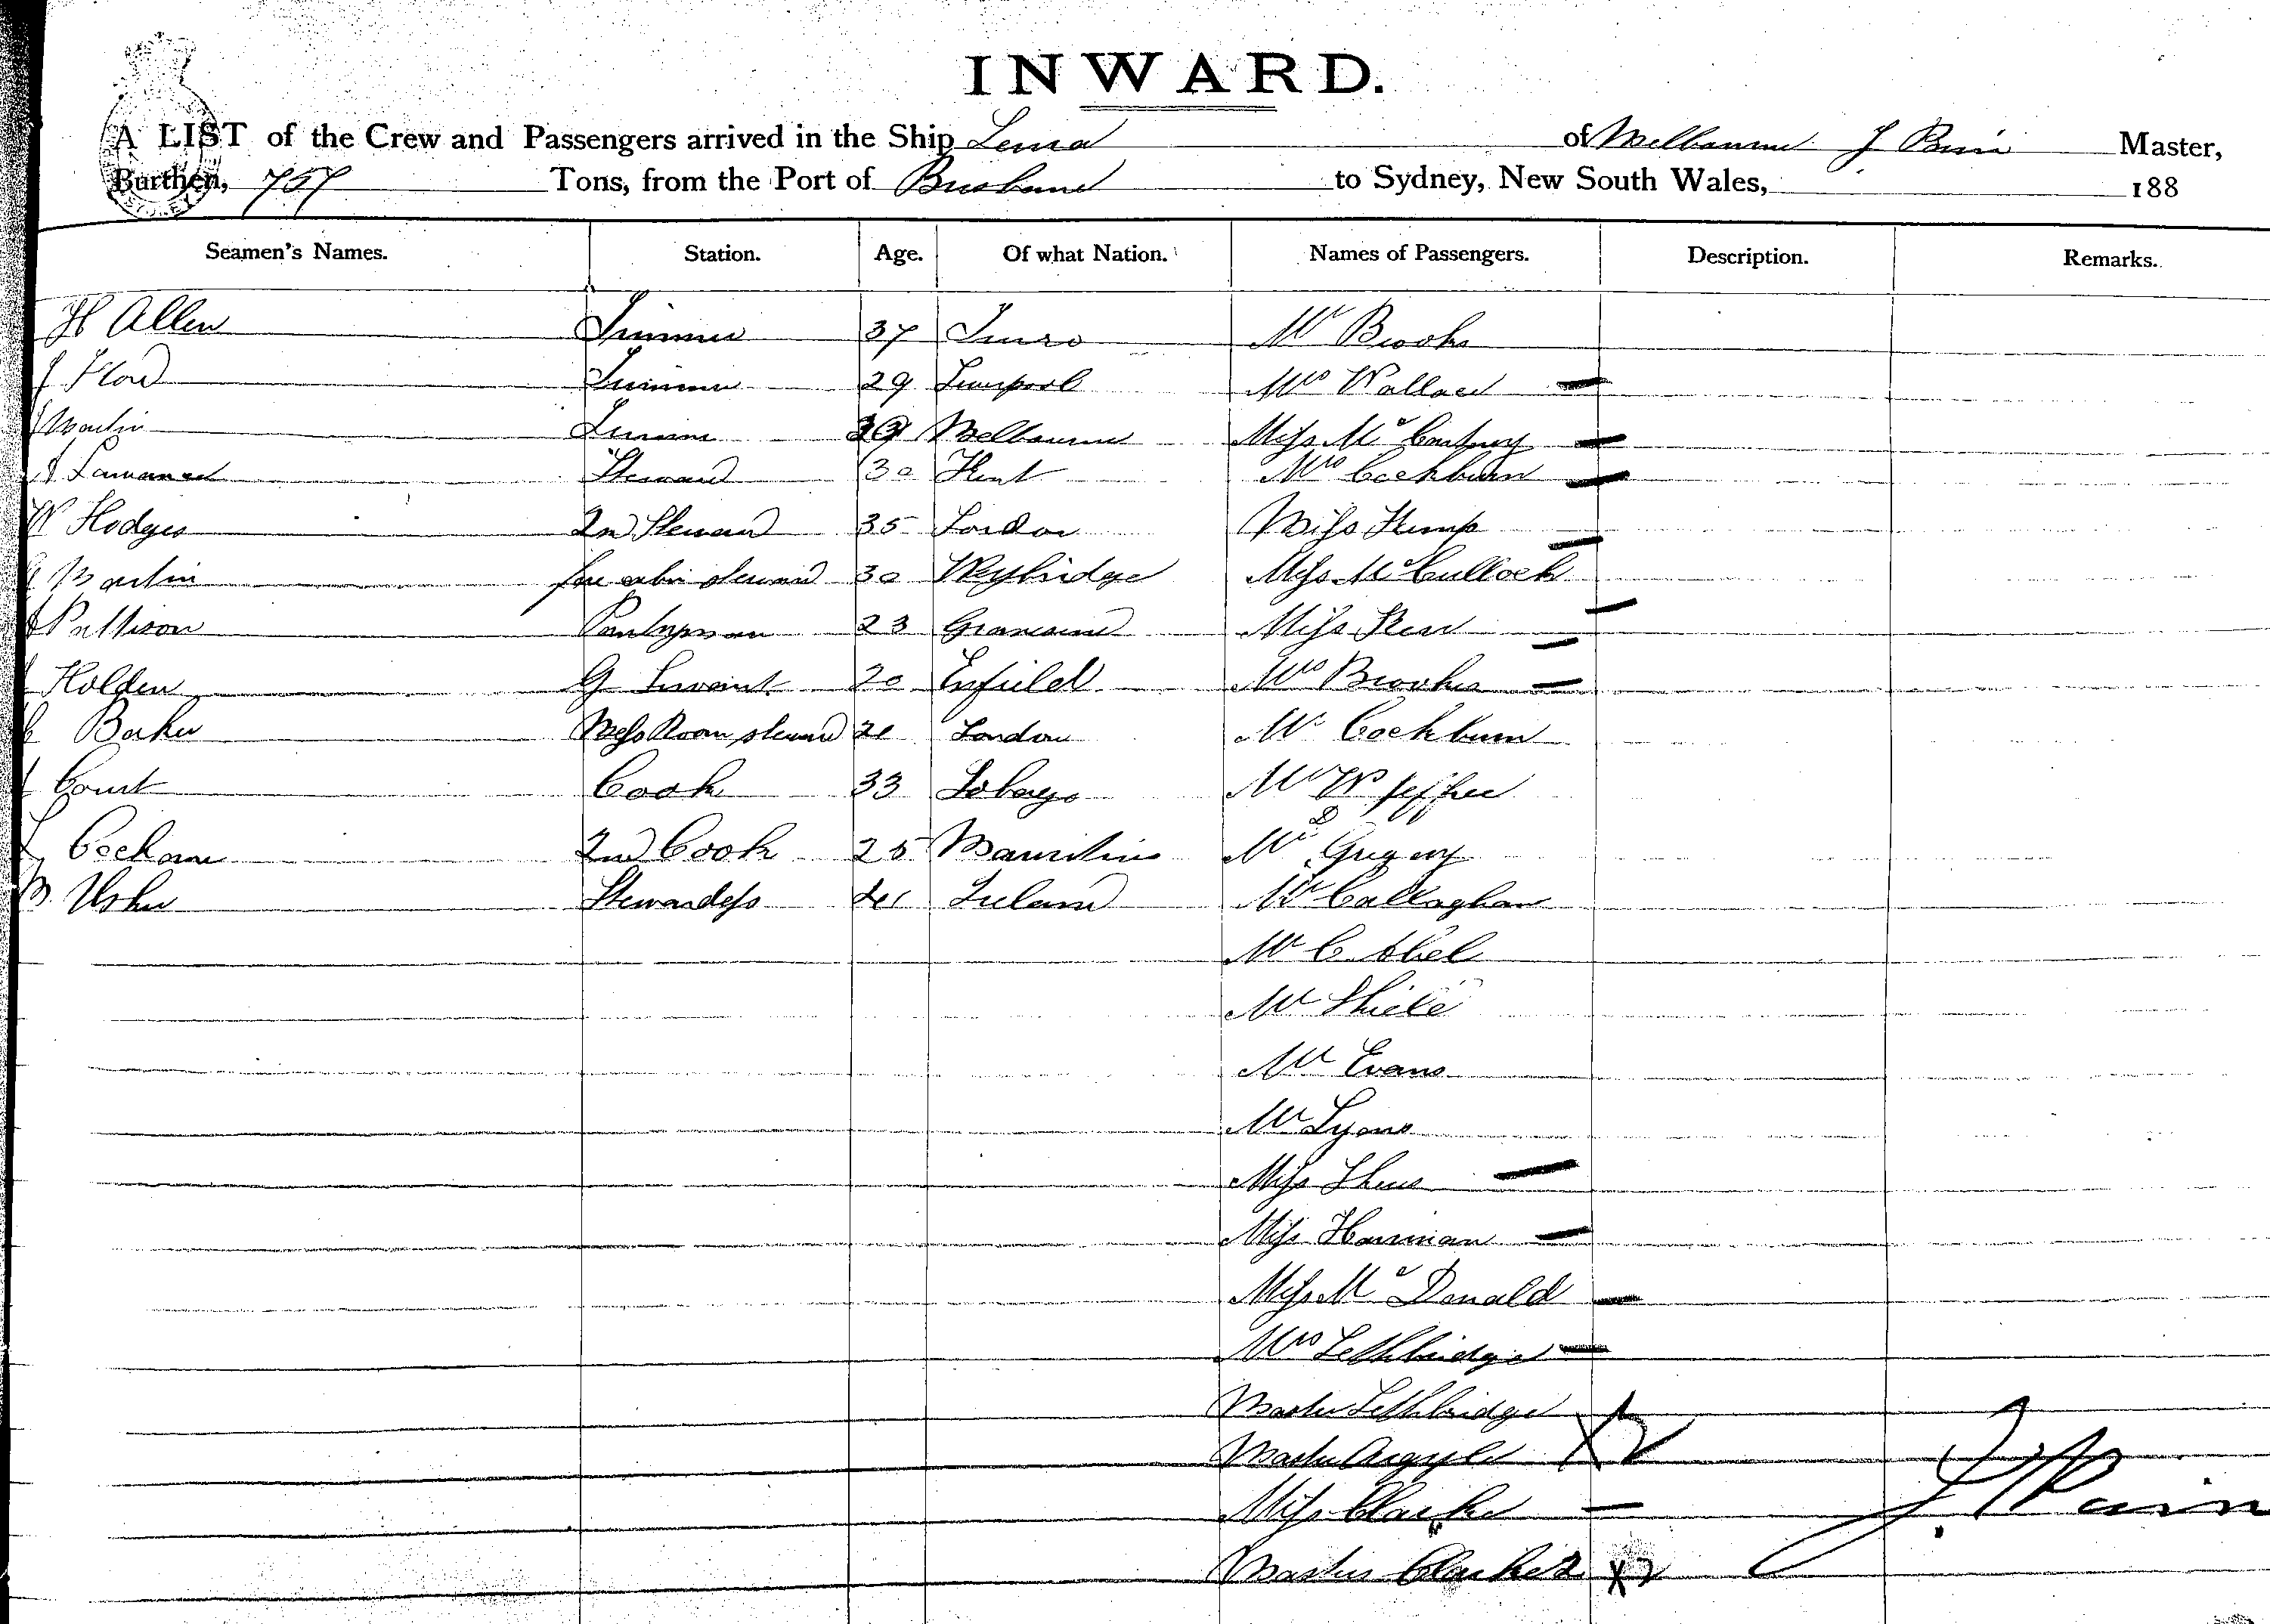 INWARD.
A LIST of the Crew and Passengers arrived in the Ship Leura of Melbourne J Pain Master,
Burthen, 757 Tons, from the Port of Brisbane to Sydney, New South Wales, 188
Seamen's Names. Station. Age. Of what Nation. Names of Passengers. Description. Remarks.
H Allen Trimmer 37 Truro Mr Brooks
Trimmer 29 Liverpool Mrs Wallace
Martin Melbourne Miss McCartney
Steward 30 Kent Mrs Cockburn
W Hodges 2nd Steward 35 London Miss Kemp
Martin fore cabin steward 30 Weybridge Miss McCulloch
Pattison Pantryman 23 Gravesend Miss
Holden G Servant 20 Enfield Mrs Brookes
Baker Mess Room steward 21 London Mr Cockburn
Court Cook 33 Tobago Mr W Jeffree
2nd Cook 25 Mauritius Mr Gregory
M. Usher Stewardess 41 Ireland Mr Callaghan
Mr C Abel
Mr Thiele
Mr Evans
Mr Lyons
Miss
Miss Harriman
Miss McDonald
Mrs Lethbridge
Master Lethbridge
Master Argyle
Miss Clarke
Masters Clarke 2 X2
J. Pain